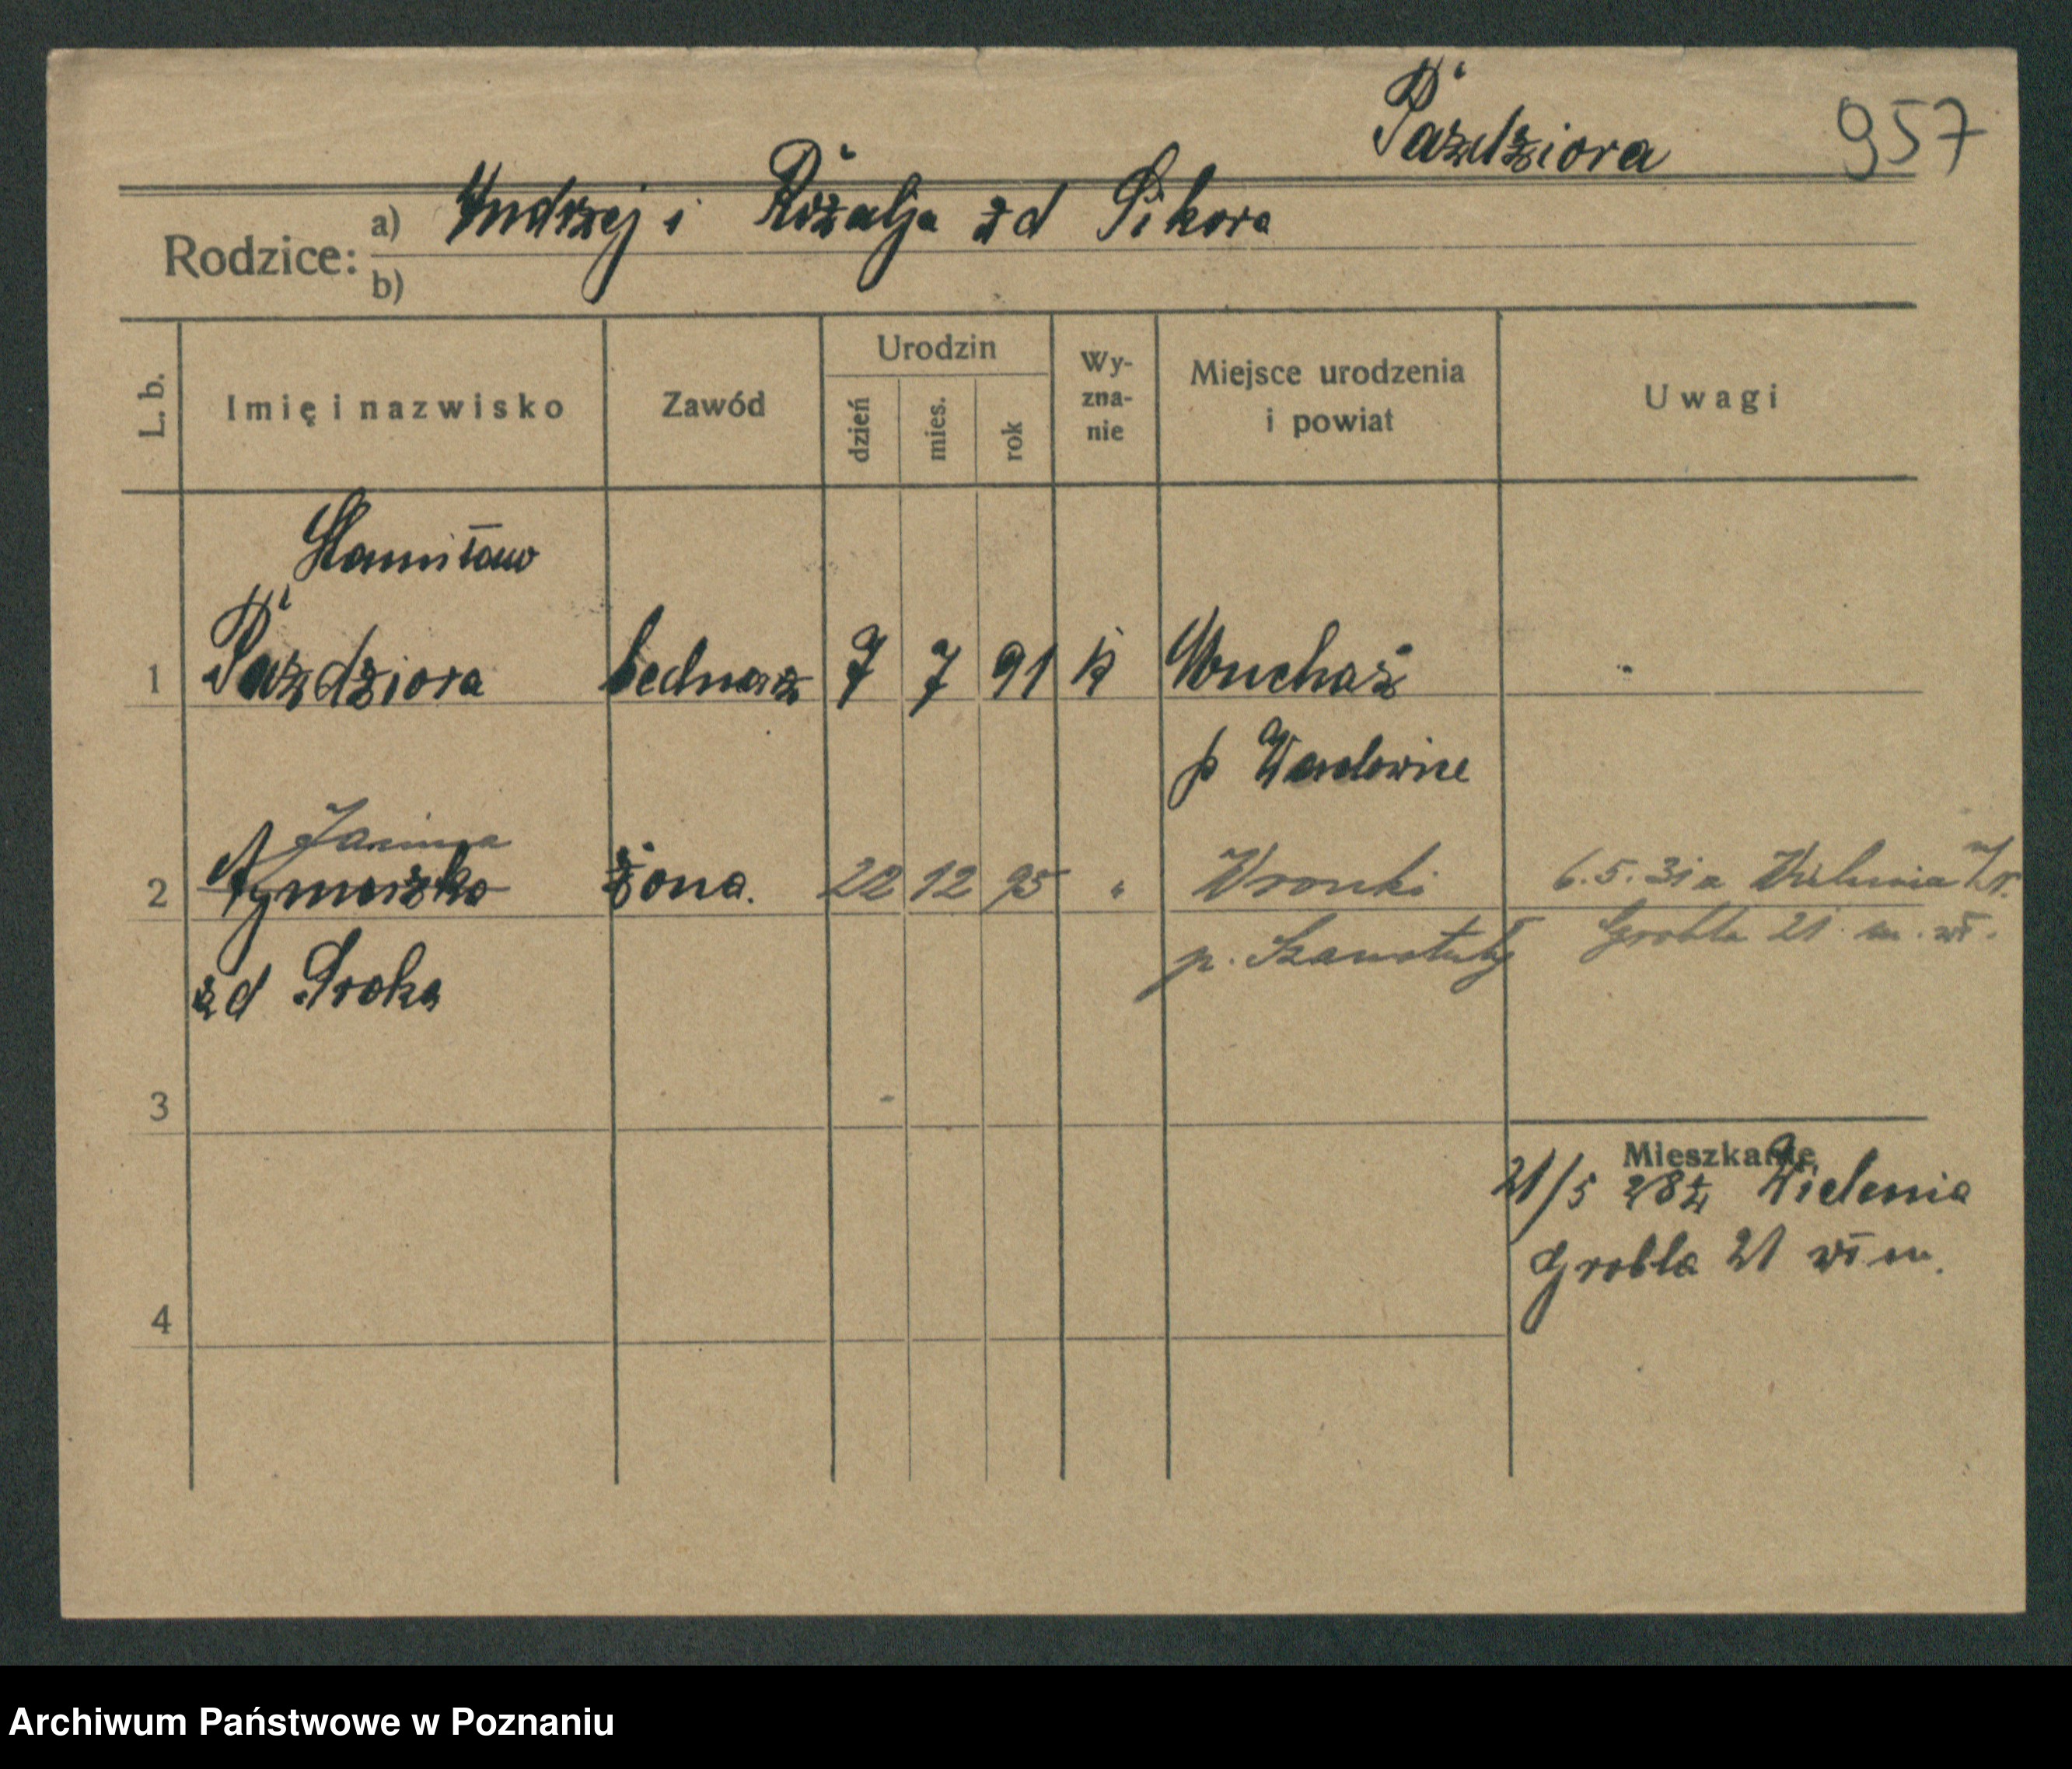 Paździora 957
Rodzice: a) Andrzej i Rozalja zd Sikora
b)
L. b. Imię i nazwisko Zawód Urodzin dzień mies. rok Wy-zna-nie Miejsce urodzenia i powiat Uwagi
Stanisław
1 Paździora bednarz 7 7 91 k
p
Janina
2 żona. 22 12 95 " Wronki 6.5.31 z Wielenia
zd Sroka p. Szamotuły Grobla 21 m. wł.
3
Mieszkanie
21/5 28 z Wielenia
Grobla 21 wł m.
4
Archiwum Państwowe w Poznaniu